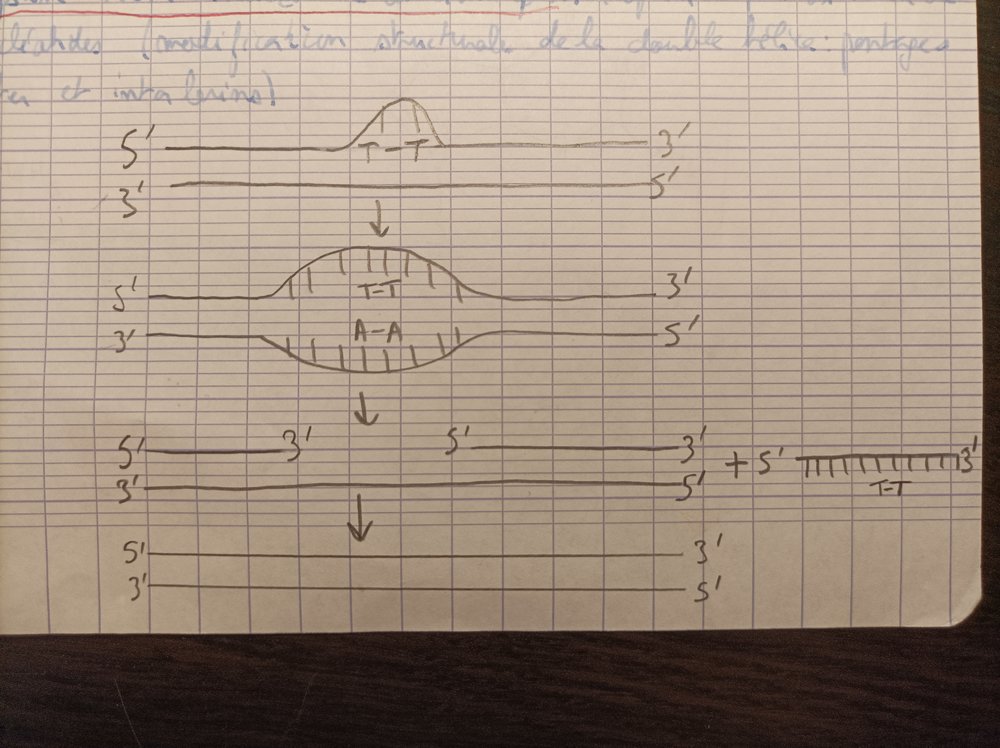 (modification structurale de la double hélice : pontages
et
5' T-T 3'
3' 5'
5' T-T 3'
3' A-A 5'
5' 3' 5' 3' + 5' 3'
3' 5' T-T
5' 3'
3' 5'